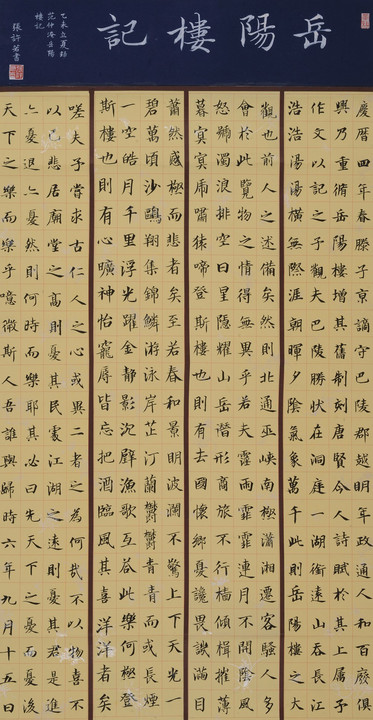 岳陽樓記
慶曆四年春滕子京謫守巴陵郡越明年政通人和百廢俱
興乃重修岳陽樓增其舊制刻唐賢今人詩賦於其上屬予
作文以記之予觀夫巴陵勝狀在洞庭一湖銜遠山吞長江
浩浩湯湯橫無際涯朝暉夕陰氣象萬千此則岳陽樓之大
觀也前人之述備矣然則北通巫峽南極瀟湘遷客騷人多
會於此覽物之情得無異乎若夫霪雨霏霏連月不開陰風
怒號濁浪排空日星隱耀山岳潛形商旅不行檣傾楫摧薄
暮冥冥虎嘯猿啼登斯樓也則有去國懷鄉憂讒畏譏滿目
蕭然感極而悲者矣至若春和景明波瀾不驚上下天光一
碧萬頃沙鷗翔集錦鱗游泳岸芷汀蘭鬱鬱青青而或長煙
一空皓月千里浮光躍金靜影沉璧漁歌互答此樂何極登
斯樓也則有心曠神怡寵辱皆忘把酒臨風其喜洋洋者矣
嗟夫予嘗求古仁人之心或異二者之為何哉不以物喜不
以己悲居廟堂之高則憂其民處江湖之遠則憂其君是進
亦憂退亦憂然則何時而樂耶其必曰先天下之憂而憂後
天下之樂而樂乎噫微斯人吾誰與歸時六年九月十五日
乙未立夏錄
范仲淹岳陽
樓記
張許諾書